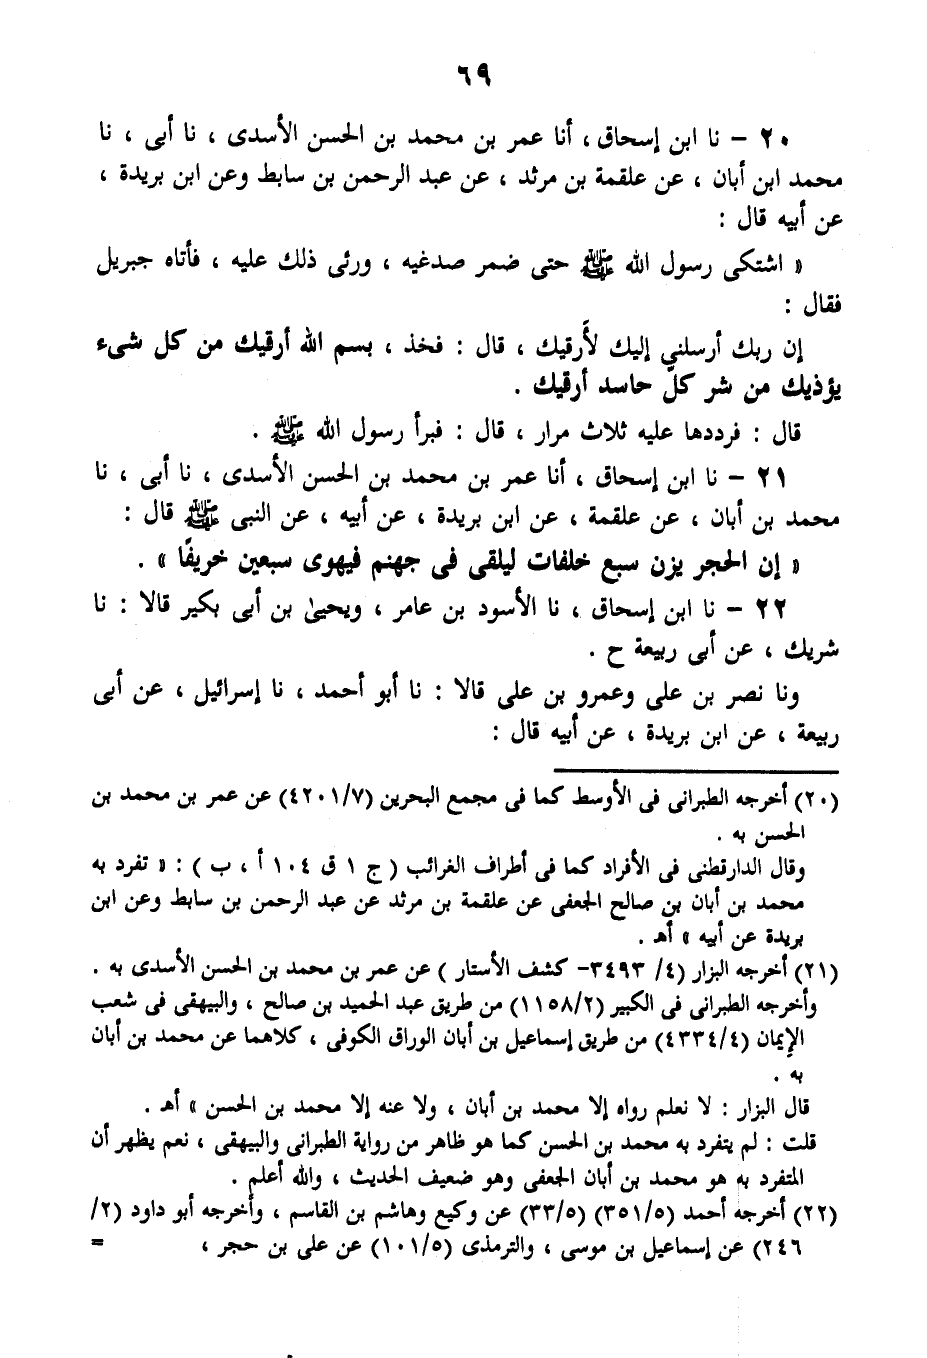 ٦٩
٢٠ – نا ابن إسحاق ، أنا عمر بن محمد بن الحسن الأسدى ، نا أبى ، نا
محمد ابن أبان ، عن علقمة بن مرثد ، عن عبد الرحمن بن سابط وعن ابن بريدة ،
عن أبيه قال :
« اشتكى رسول الله ﷺ حتى ضمر صدغيه ، ورئى ذلك عليه ، فأتاه جبريل
فقال :
إن ربك أرسلني إليك لأَرقيك ، قال : فخذ ، بسم الله أرقيك من كل شىء
يؤذيك من شر كلّ حاسد أرقيك .
قال : فرددها عليه ثلاث مرار ، قال : فبرأ رسول الله ﷺ .
٢١ – نا ابن إسحاق ، أنا عمر بن محمد بن الحسن الأسدى ، نا أبى ، نا
محمد بن أبان ، عن علقمة ، عن ابن بريدة ، عن أبيه ، عن النبى ﷺ قال :
« إن الحجر يزن سبع خلفات ليلقى فى جهنم فيهوى سبعين خريفًا » .
٢٢ – نا ابن إسحاق ، نا الأسود بن عامر ، ويحيىٰ بن أبى بكير قالا : نا
شريك ، عن أبى ربيعة ح .
ونا نصر بن على وعمرو بن على قالا : نا أبو أحمد ، نا إسرائيل ، عن أبى
ربيعة ، عن ابن بريدة ، عن أبيه قال :
(٢٠) أخرجه الطبرانى فى الأوسط كما فى مجمع البحرين (٤٢٠١/٧) عن عمر بن محمد بن
الحسن به .
وقال الدارقطنى فى الأفراد كما فى أطراف الغرائب ( ج ١ ق ١٠٤ أ ، ب ) : « تفرد به
محمد بن أبان بن صالح الجعفى عن علقمة بن مرثد عن عبد الرحمن بن سابط وعن ابن
بريدة عن أبيه » أهـ .
(٢١) أخرجه البزار (٤/ ٣٤٩٣- كشف الأستار ) عن عمر بن محمد بن الحسن الأسدى به .
وأخرجه الطبرانى فى الكبير (١١٥٨/٢) من طريق عبد الحميد بن صالح ، والبيهقى فى شعب
الإيمان (٤٣٣٤/٤) من طريق إسماعيل بن أبان الوراق الكوفى ، كلاهما عن محمد بن أبان
به .
قال البزار : لا نعلم رواه إلا محمد بن أبان ، ولا عنه إلا محمد بن الحسن » أهـ .
قلت : لم يتفرد به محمد بن الحسن كما هو ظاهر من رواية الطبرانى والبيهقى ، نعم يظهر أن
المتفرد به هو محمد بن أبان الجعفى وهو ضعيف الحديث ، والله أعلم .
(٢٢) أخرجه أحمد (٣٥١/٥) (٣٣/٥) عن وكيع وهاشم بن القاسم ، وأخرجه أبو داود (٢/
٢٤٦) عن إسماعيل بن موسى ، والترمذى (١٠١/٥) عن على بن حجر ، =